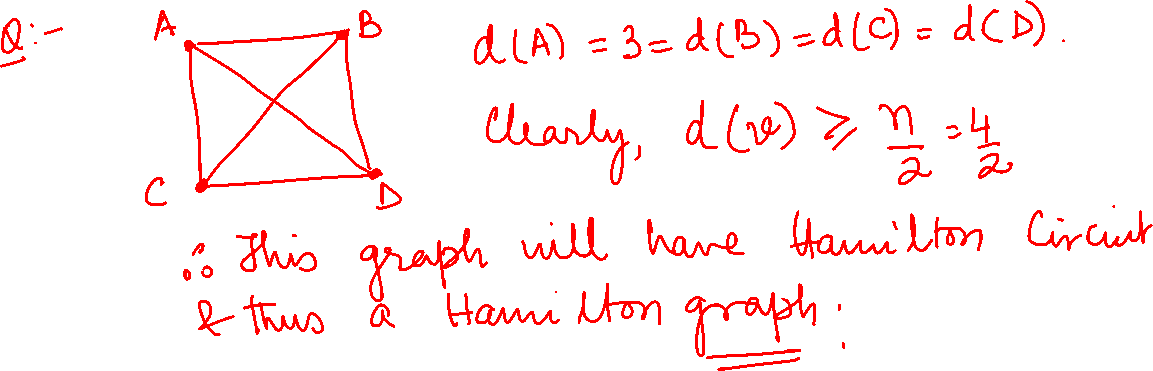 Q:-
A B
C D
d(A) = 3 = d(B) = d(C) = d(D).
Clearly, d(v) ≥ n/2 = 4/2
∴ This graph will have Hamilton Circuit
& thus a Hamilton graph.